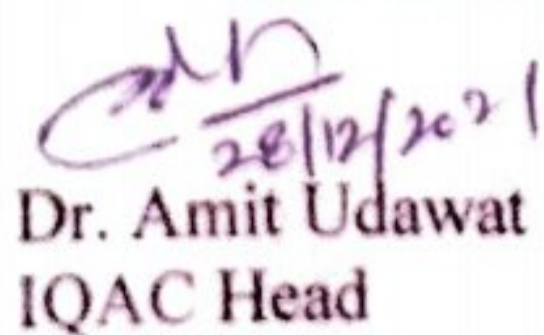 28/12/2021
Dr. Amit Udawat
IQAC Head